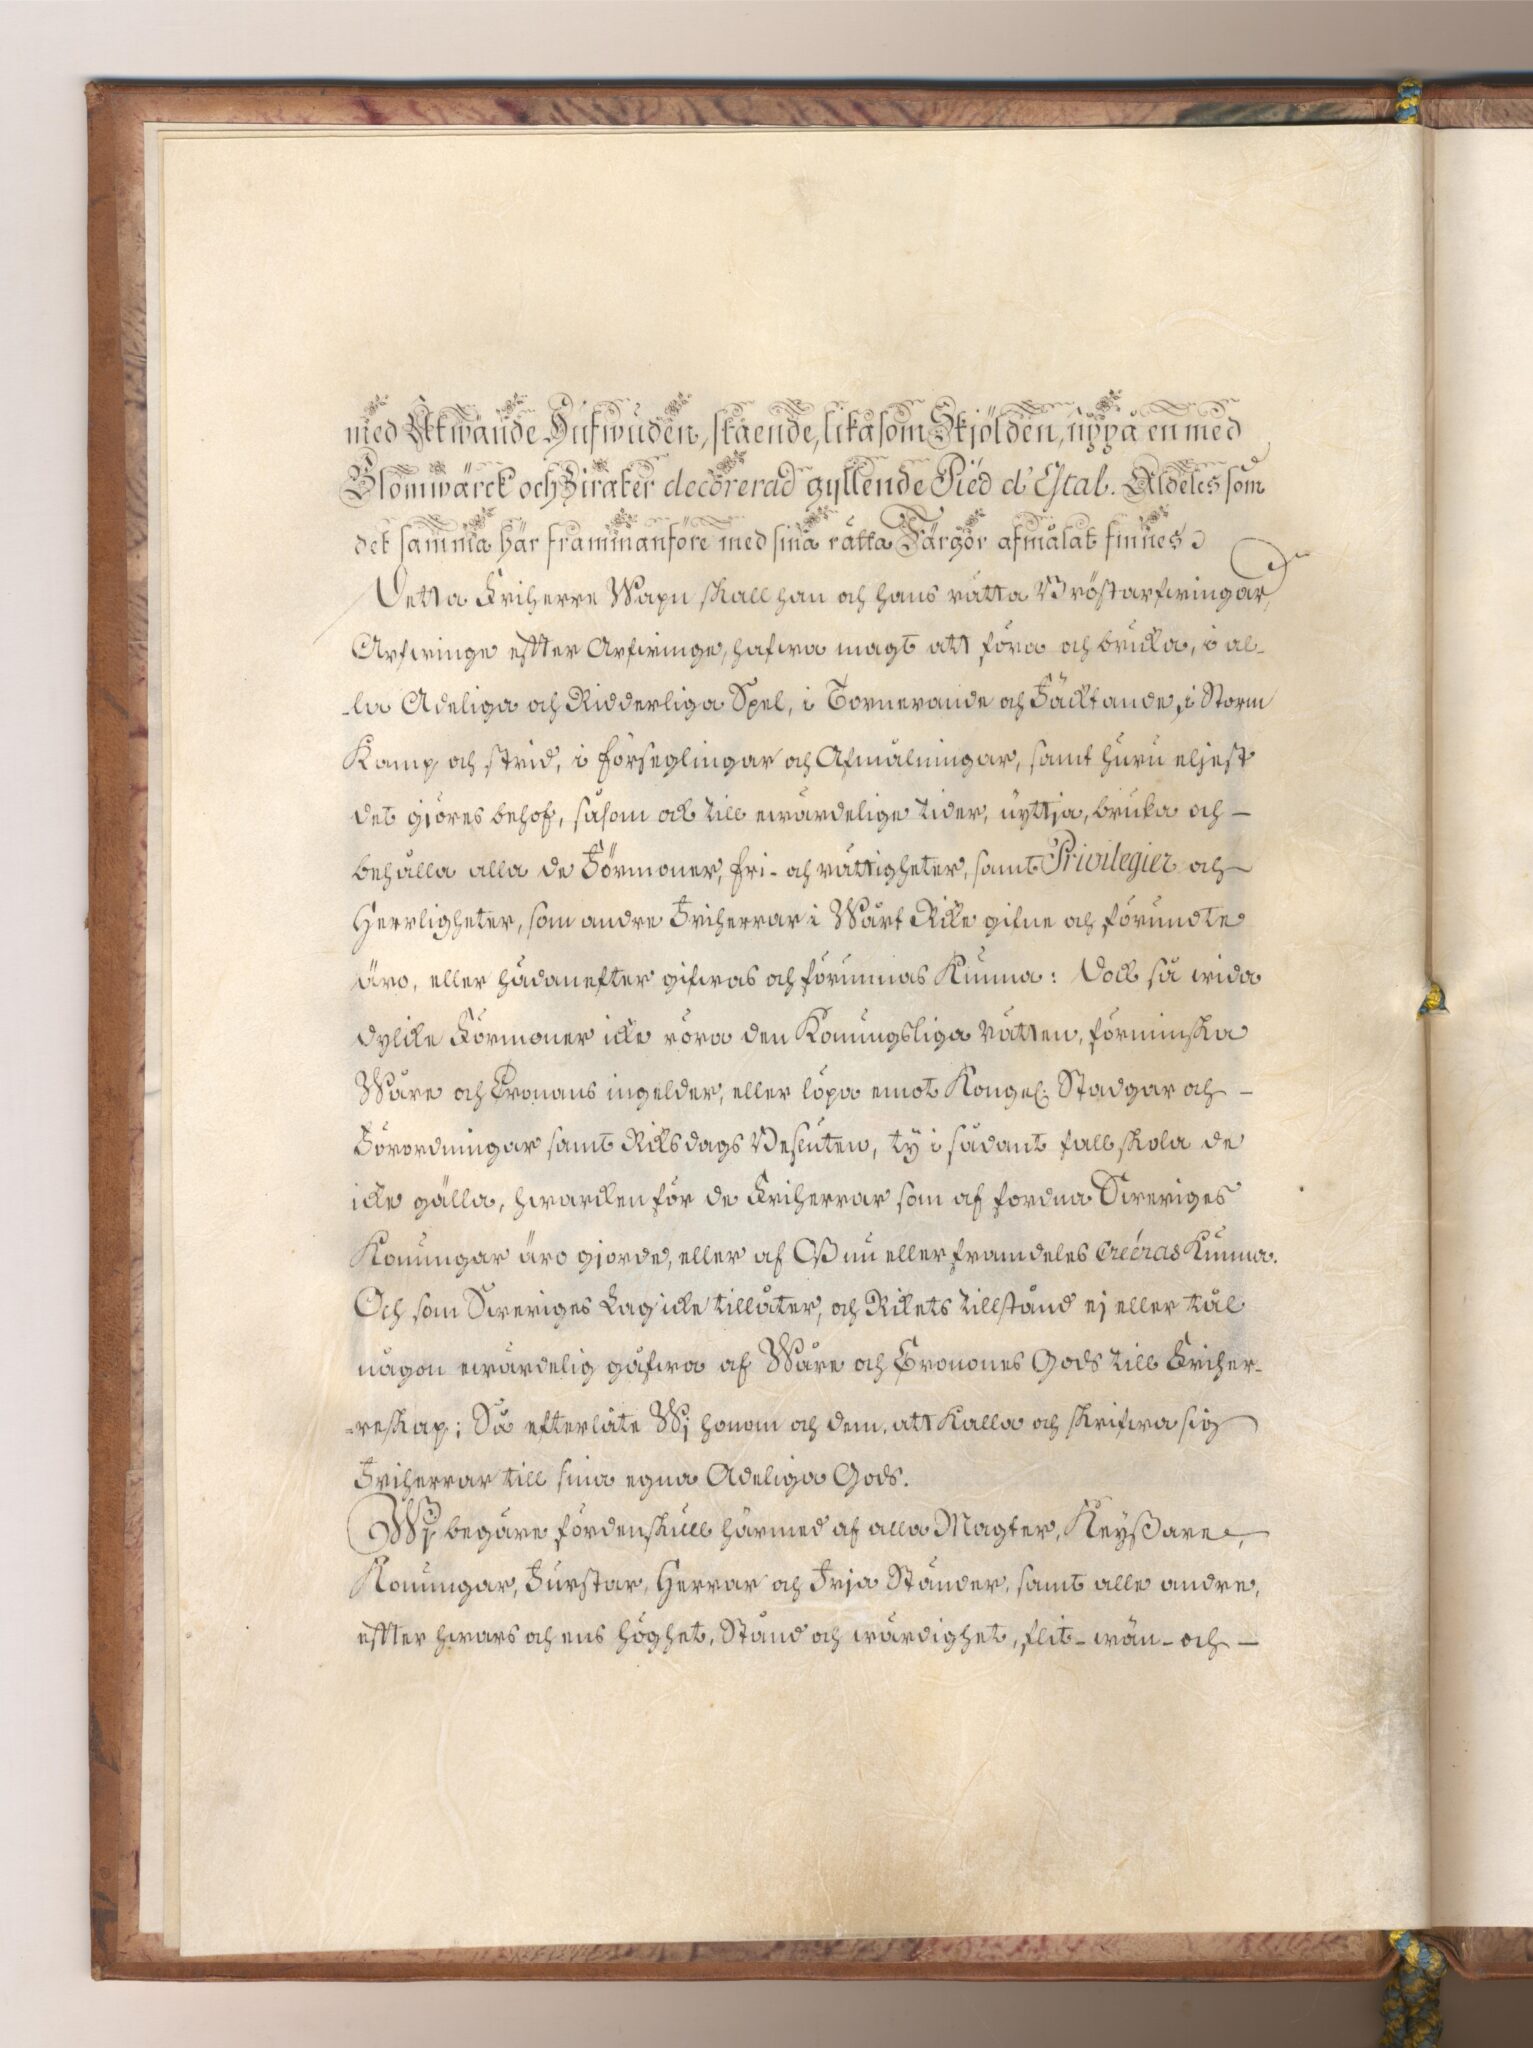 med Utwände Hufwuden, stående, likasom Skjölden, uppå en med
Blomwärck och Zirater decorerad gyllende Pied d'Estal. Aldeles som
det samma här frammanföre med sina rätta Färgor afmålat finnes.
Detta Friherre Wapn skall han och hans rätta Bröstarfwingar,
Arfwinge effter Arfwinge, hafwa magt att föra och bruka, i al-
-la Adeliga och Ridderliga Spel, i Tornerande och Fäcktande, i Storm
Kamp och strid, i förseglingar och Afmålningar, samt huru eljest
det gjöres behof, såsom ock till ewärdelige tider, nyttja, bruka och -
behålla alla de Förmoner, fri- och rättigheter, samt Privilegier och
Herrligheter, som andre Friherrar i Wårt Rike gifne och förundte
äro, eller hädanefter gifwas och förunnas Kunna: Dock så wida
dylike Förmoner icke röra den Konungsliga rätten, förminska
Wåre och Cronans ingelder, eller löpa emot Kongel: Stadgar och -
Förordningar samt Riksdags Besluten, ty i sådant fall skola de
icke gälla, hwarken för de Friherrar som af fordna Sweriges
Konungar äro gjorde, eller af Oß nu eller framdeles creéras Kunna.
Och som Sweriges Lag icke tillåter, och Rikets tillstånd ej eller tål
någon ewärdelig gåfwa af Wåre och Cronones Gods till Friher-
-reskap; Så efterlåte Wj honom och dem, att Kalla och skrifwa sig
Friherrar till sina egna Adeliga Gods.
Wj begäre fördenskull härmed af alla Magter, Keyßare,
Konungar, Furstar, Herrar och Frja Ständer, samt alle andre,
effter hwars och ens höghet, Stånd och wärdighet, flit- wän- och -